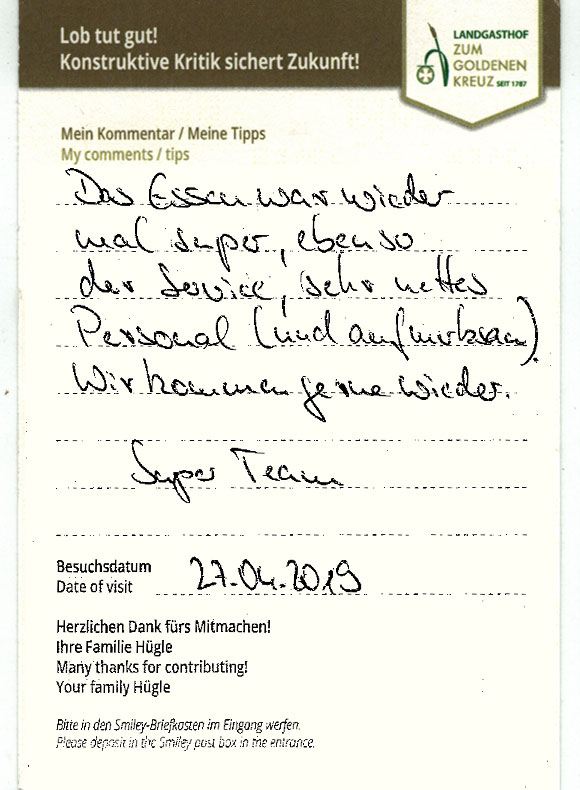 Lob tut gut!
Konstruktive Kritik sichert Zukunft!
LANDGASTHOF
ZUM
GOLDENEN
KREUZ SEIT 1787
Mein Kommentar / Meine Tipps
My comments / tips
Das Essen war wieder
mal super, ebenso
der Service, sehr nettes
Personal (und aufmerksam).
Wir kommen gerne wieder.
Super Team
Besuchsdatum
Date of visit 27.04.2019
Herzlichen Dank fürs Mitmachen!
Ihre Familie Hügle
Many thanks for contributing!
Your family Hügle
Bitte in den Smiley-Briefkasten im Eingang werfen.
Please deposit in the Smiley post box in the entrance.